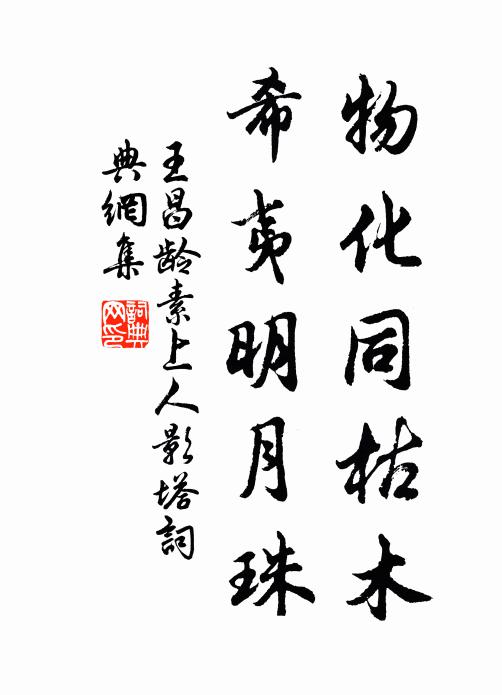 物化同枯木
希夷明月珠
王昌龄素上人影塔詞
典網集
詞典
网印